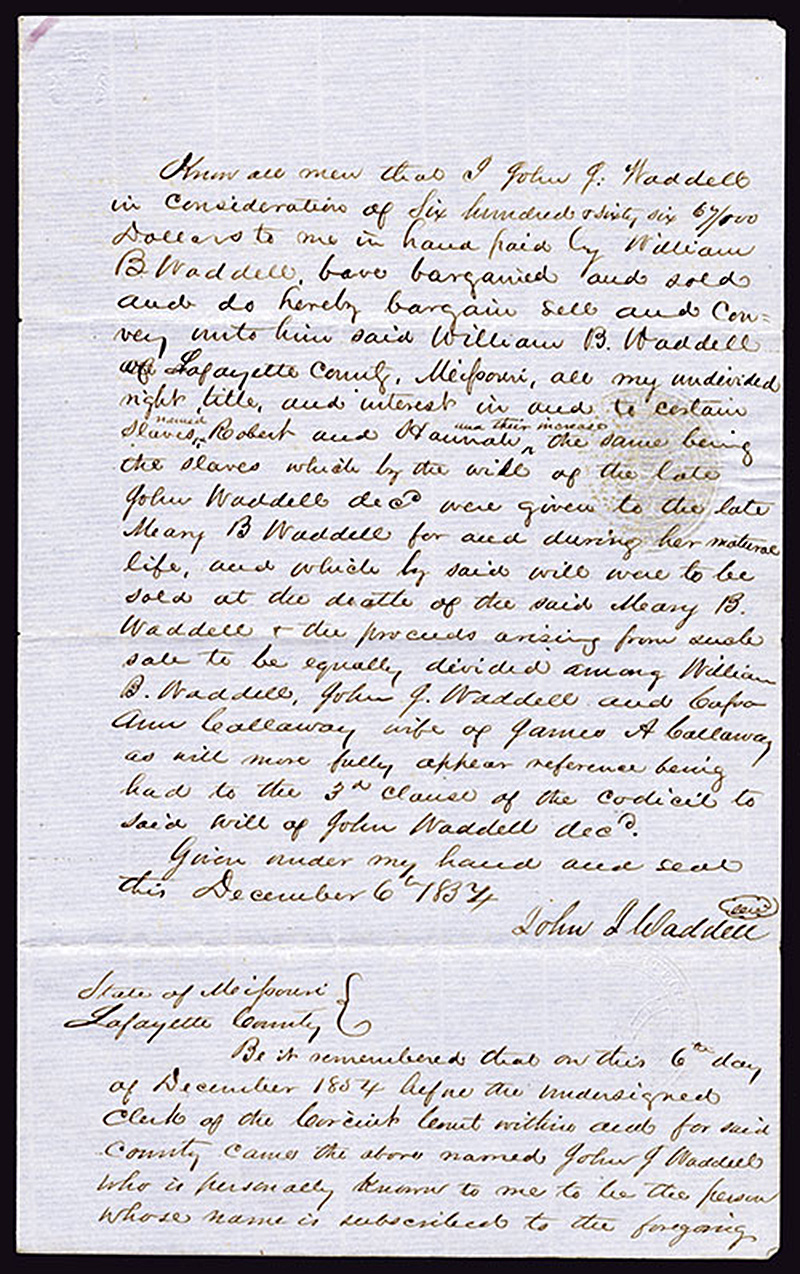 Know all men that I John J. Waddell
in consideration of Six hundred & sixty six 67/100
Dollars to me in hand paid by William
B. Waddell, have bargained and sold
and do hereby bargain sell and con=
vey unto him said William B. Waddell
of Lafayette County, Missouri, all my undivided
right, title, and interest in and to certain
slaves, named Robert and Hannah, and their increase the same being
the slaves which by the will of the late
John Waddell decd were given to the late
Mary B Waddell for and during her natural
life, and which by said will were to be
sold at the death of the said Mary B.
Waddell & the proceeds arising from such
sale to be equally divided among William
B. Waddell, John J. Waddell and
Ann Callaway wife of James A Callaway
as will more fully appear reference being
had to the 3d clause of the codicil to
said will of John Waddell decd.
Given under my hand and seal
this December 6th 1854
John J Waddell seal
State of Missouri
Lafayette County
Be it remembered that on this 6th day
of December 1854 before the undersigned
Clerk of the Circuit Court within and for said
county came the above named John J Waddell
who is personally known to me to be the person
whose name is subscribed to the foregoing